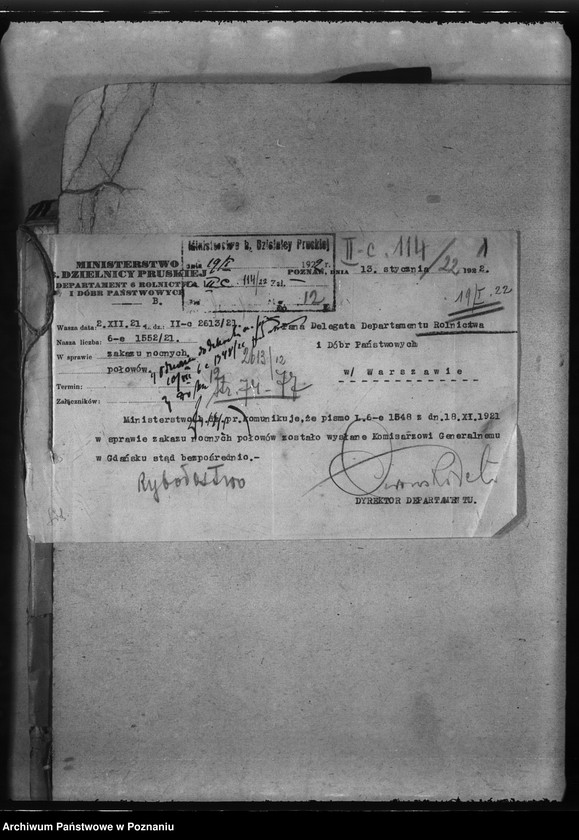 Ministerstwo b. Dzielnicy Pruskiej
dnia 19/I 1922 r.
II C. 114/22 Zal. —
12
II-c. 114/22 1
MINISTERSTWO
B. DZIELNICY PRUSKIEJ
DEPARTAMENT 6 ROLNICTWA
I DÓBR PAŃSTWOWYCH
B.
POZNAŃ, DNIA 13. stycznia 1922.
19/I.22
Wasza data: 2.XII.21 L.dz.: II-c 2613/21.
Nasza liczba: 6-e 1552/21.
W sprawie zakazu nocnych
połowów.
Termin:
Załączników:
Pana Delegata Departamentu Rolnictwa
i Dóbr Państwowych
w/ Warszawie
2613/12
Str. 74-77
Ministerstwo b. dz. pr. komunikuje, że pismo L.6-e 1548 z dn.18.XI.1921
w sprawie zakazu nocnych połowów zostało wysłane Komisarzowi Generalnemu
w Gdańsku stąd bezpośrednio.-
Rybołostwo
DYREKTOR DEPARTAMENTU.
Archiwum Państwowe w Poznaniu